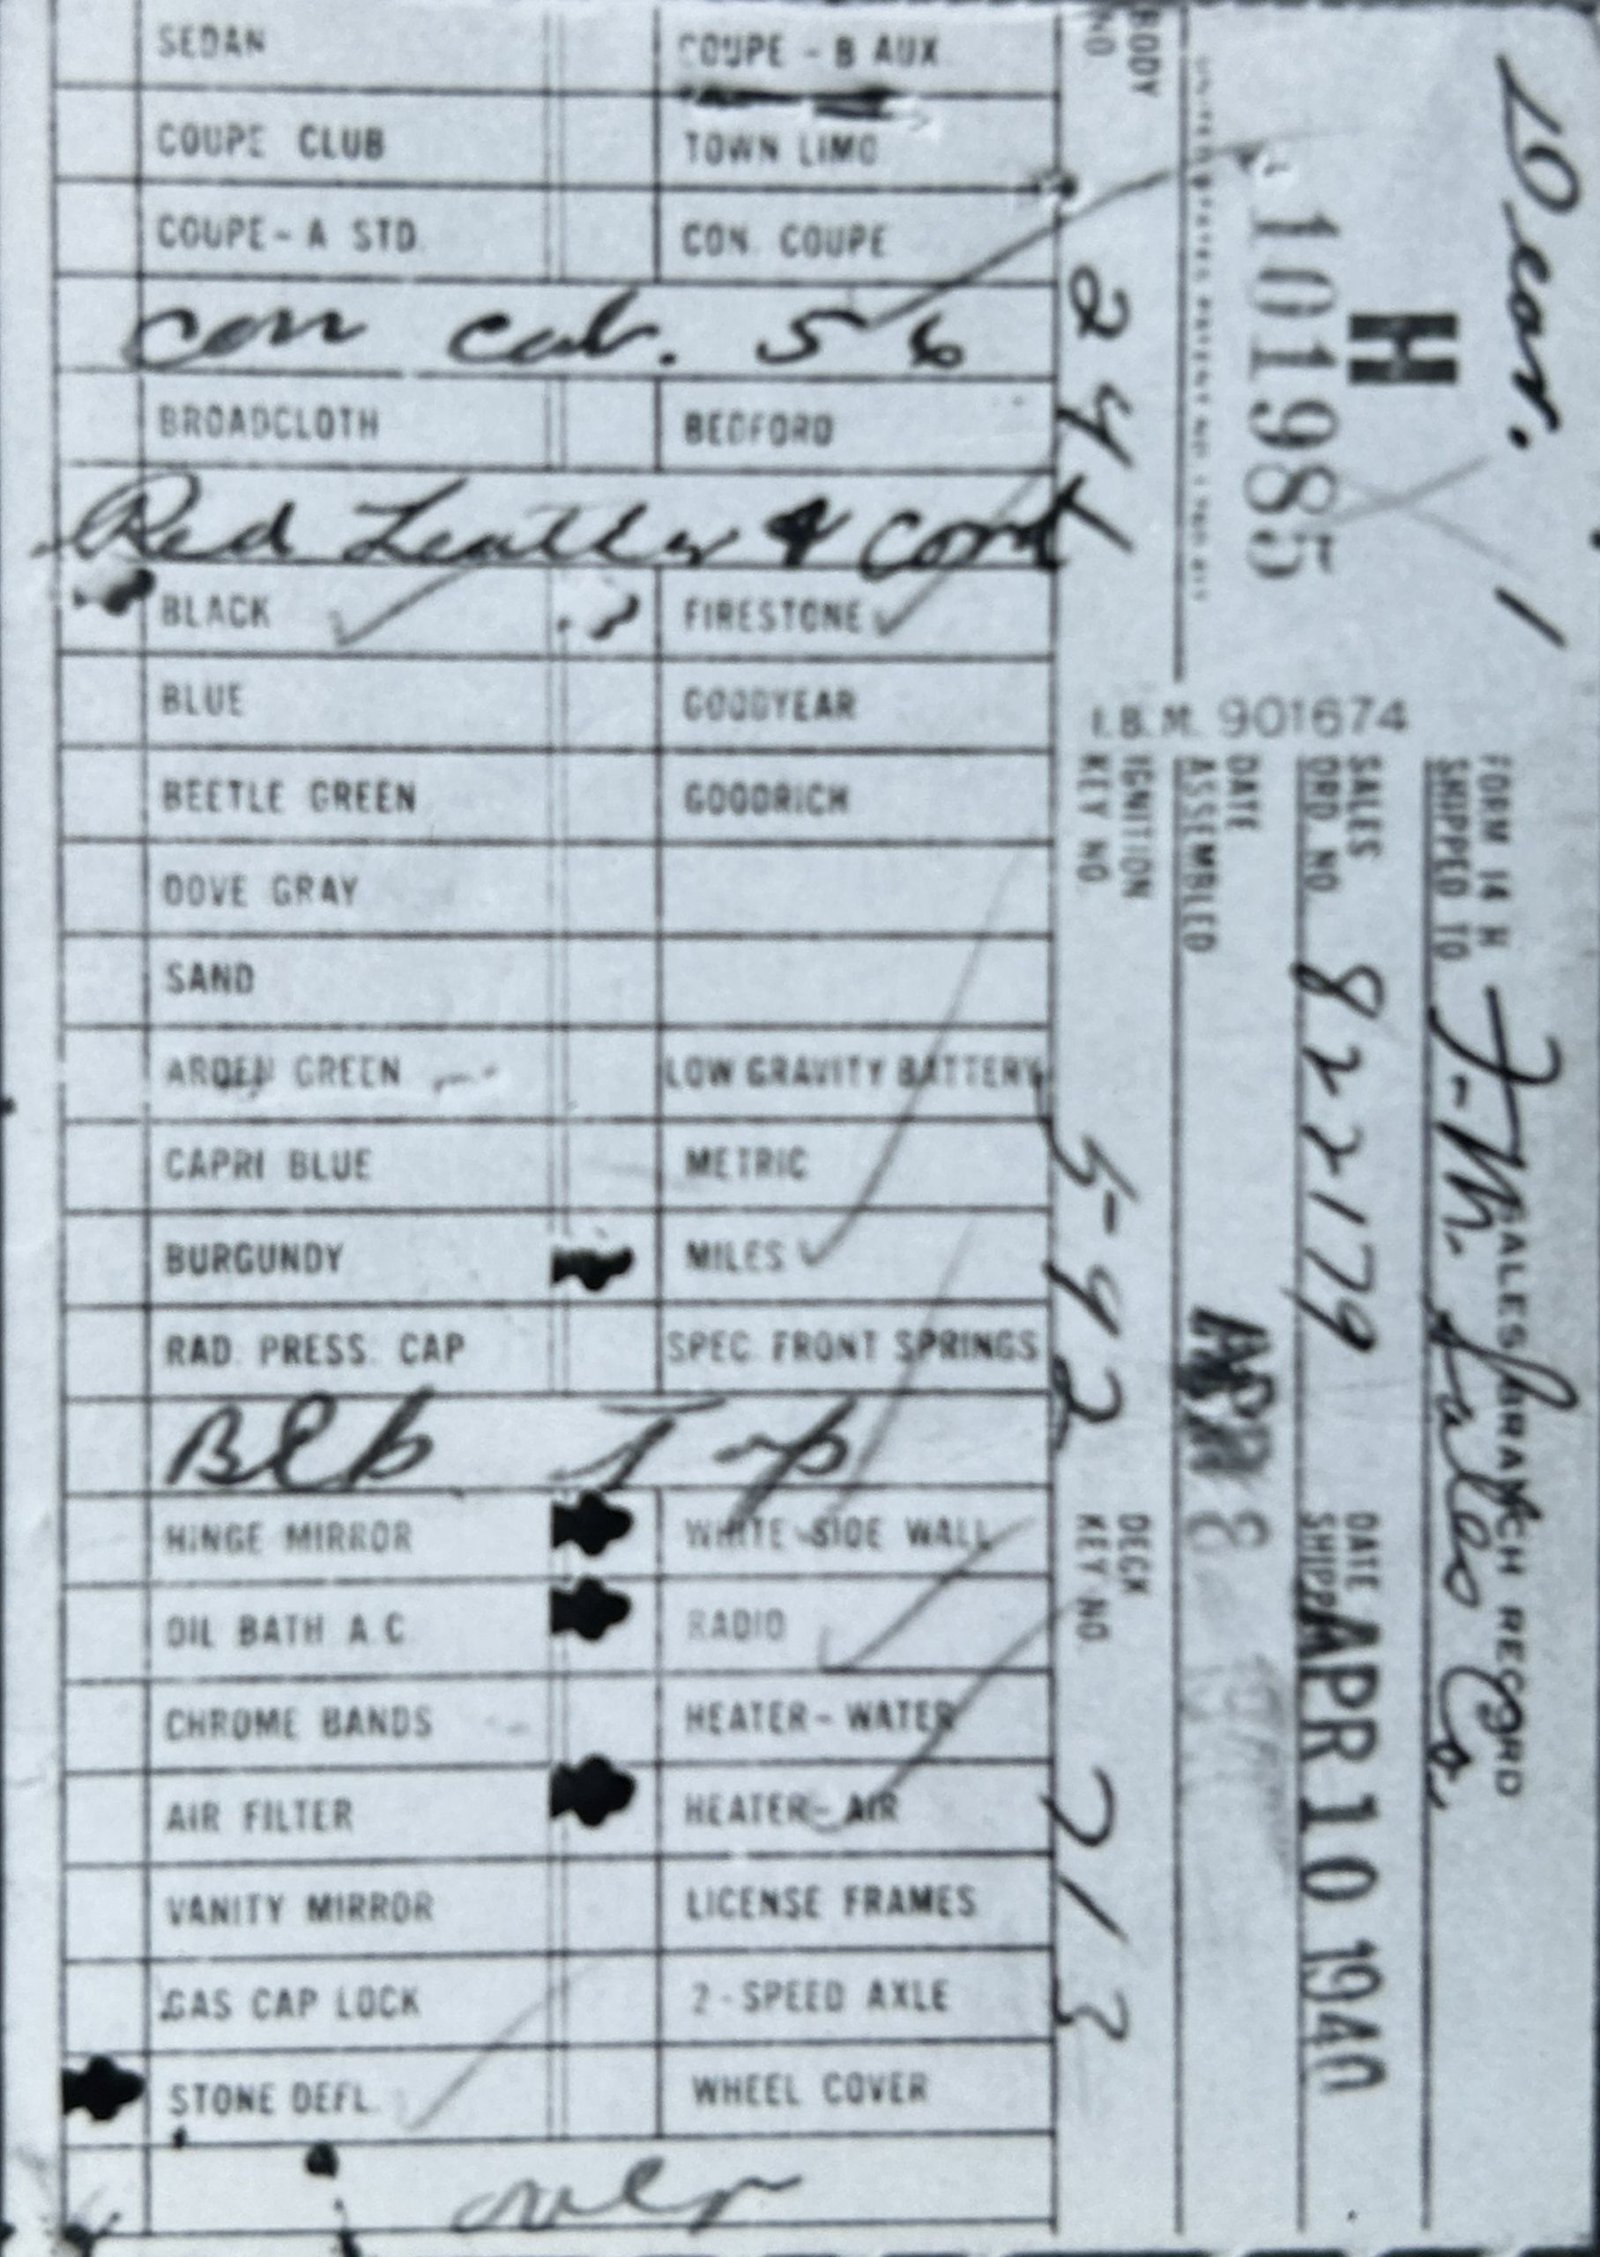 Dear. 1
H
101985
UNITED
PATENT NO.
FORM 14 H SALES BRANCH RECORD
SHIPPED TO F. M. Sales Co.
SALES ORD. NO. 822179
DATE SHIPP APR 10 1940
I.B.M. 901674
DATE ASSEMBLED APR 8
BODY NO 244
IGNITION KEY NO. 592
DECK KEY NO. 713
SEDAN COUPE - B AUX
COUPE CLUB TOWN LIMO
COUPE - A STD. CON. COUPE
con cab. 56
BROADCLOTH BEDFORD
Red Leather & Cord
BLACK FIRESTONE
BLUE GOODYEAR
BEETLE GREEN GOODRICH
DOVE GRAY
SAND
ARDEN GREEN LOW GRAVITY BATTERY
CAPRI BLUE METRIC
BURGUNDY MILES
RAD. PRESS. CAP SPEC. FRONT SPRINGS
Blk Top
HINGE MIRROR WHITE SIDE WALL
OIL BATH A.C. RADIO
CHROME BANDS HEATER - WATER
AIR FILTER HEATER - AIR
VANITY MIRROR LICENSE FRAMES
GAS CAP LOCK 2 - SPEED AXLE
STONE DEFL. WHEEL COVER
over